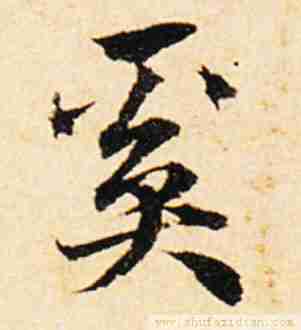 奚
www.shufazidian.com